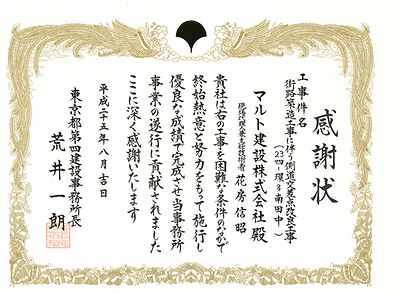 感謝状
工事件名
街路築造工事に伴う側道交差点改良工事
(23四-環8南田中)
マルト建設株式会社殿
現場代理人兼主任技術者 花房信昭
貴社は右の工事を困難な条件のなかで
終始熱意と努力をもって施行し
優良な成績で完成させ当事務所
事業の遂行に貢献されました
ここに深く感謝いたします
平成二十五年八月吉日
東京都第四建設事務所長
荒井一朗